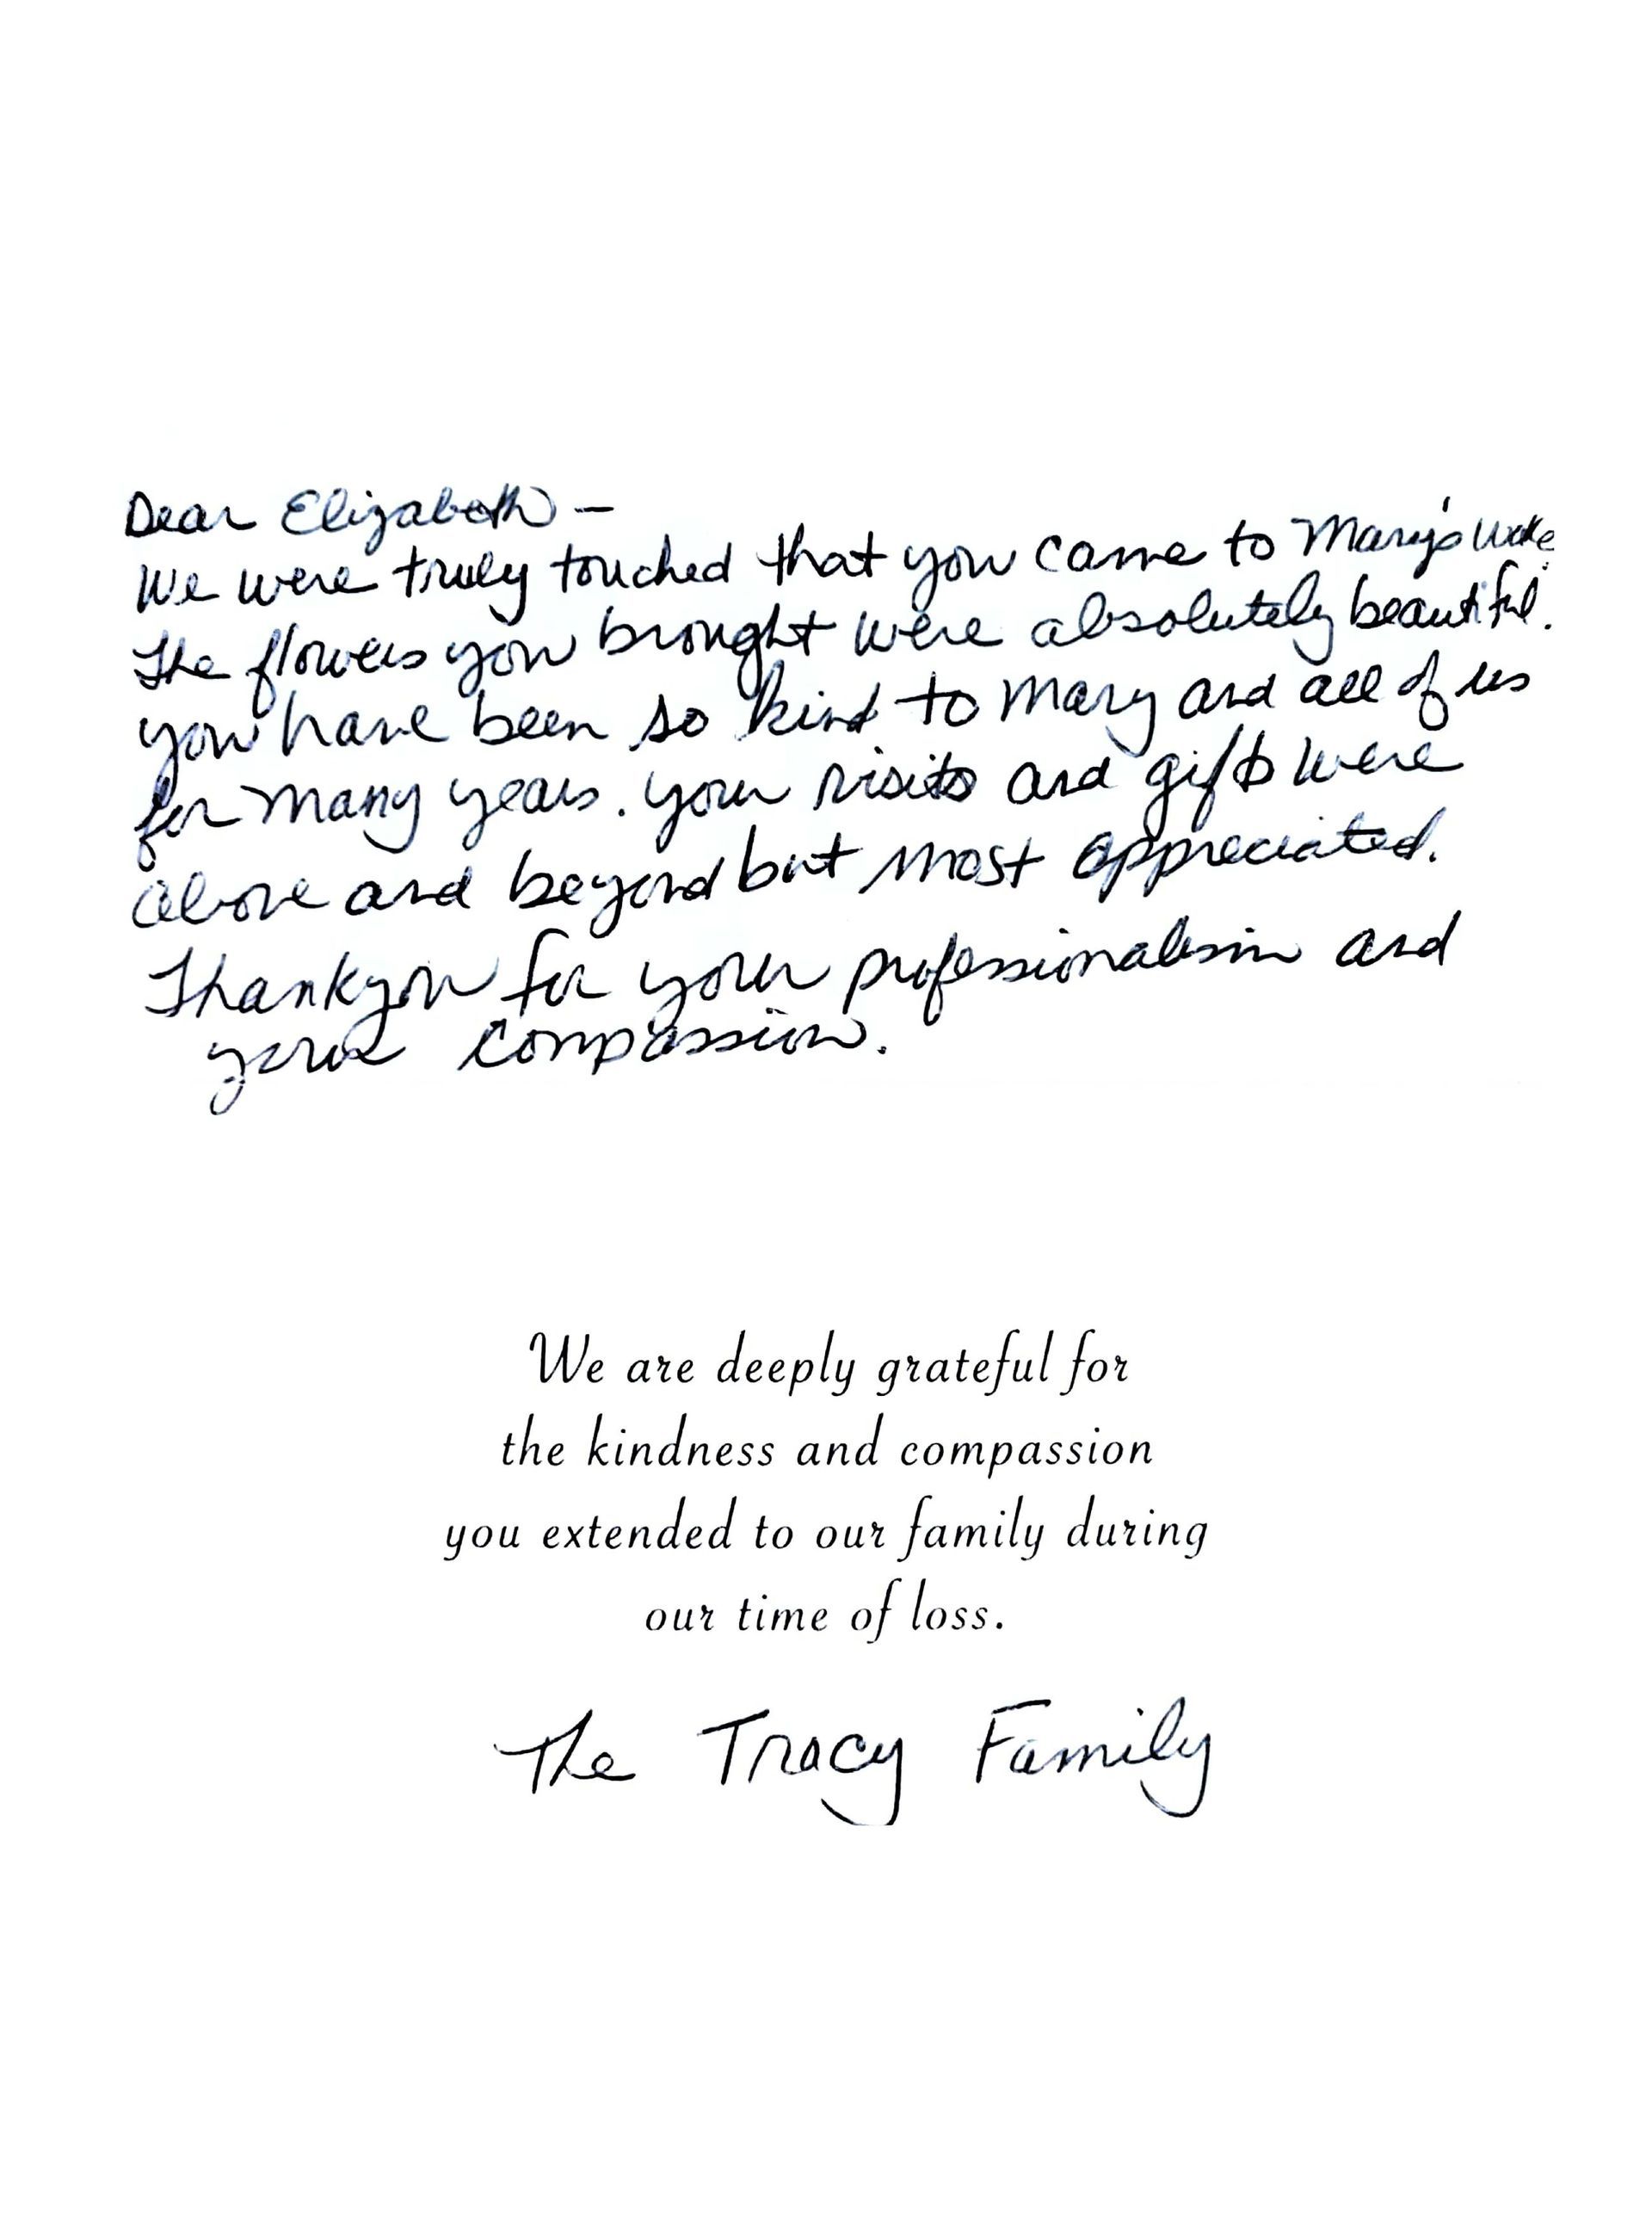 Dear Elizabeth –
We were truly touched that you came to Mary's wake.
The flowers you brought were absolutely beautiful.
you have been so kind to Mary and all of us
for many years. your visits and gifts were
above and beyond but most appreciated.
Thank you for your professionalism and
your compassion.
We are deeply grateful for
the kindness and compassion
you extended to our family during
our time of loss.
The Tracy Family